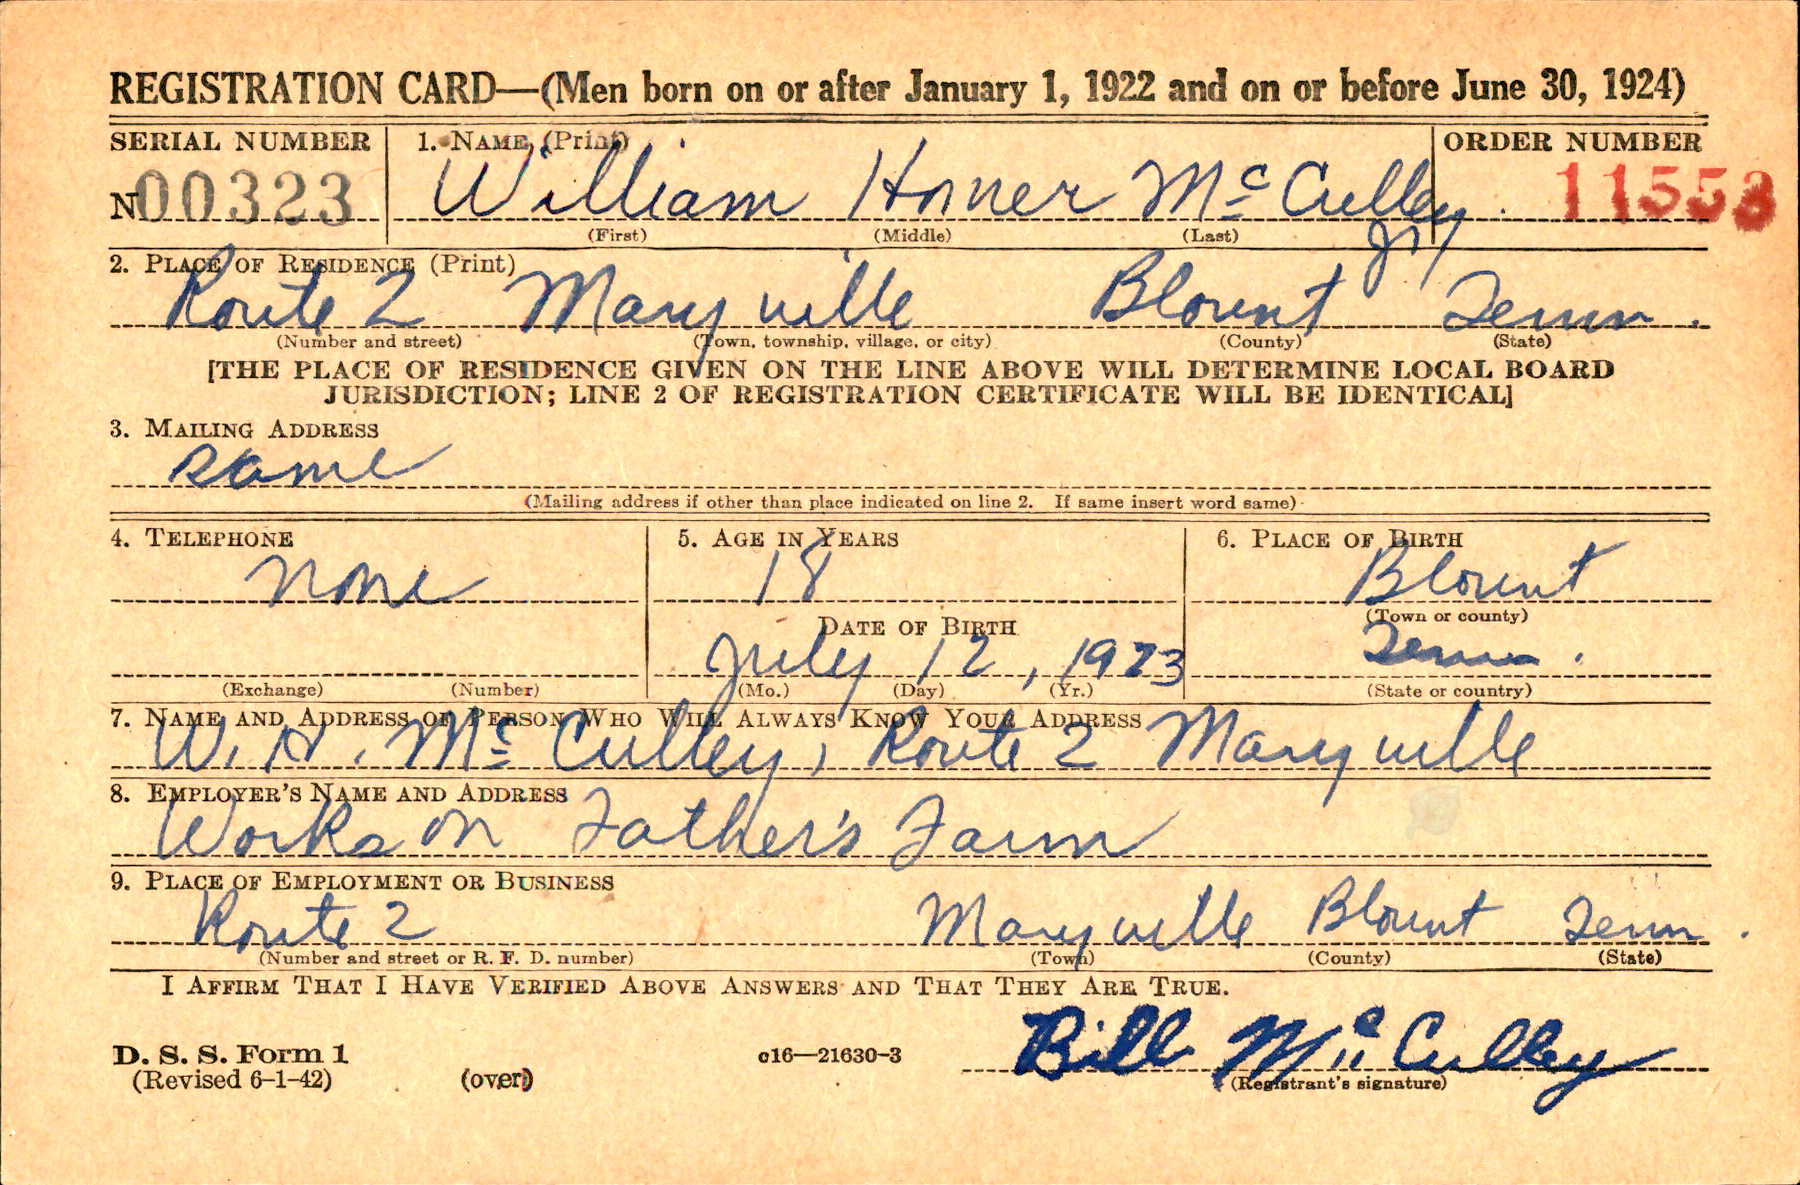 REGISTRATION CARD—(Men born on or after January 1, 1922 and on or before June 30, 1924)
SERIAL NUMBER 1. NAME (Print) ORDER NUMBER
N00323 William Homer McCulley 11553
(First) (Middle) (Last) Jr
2. PLACE OF RESIDENCE (Print)
Route 2 Maryville Blount Tenn.
(Number and street) (Town, township, village, or city) (County) (State)
[THE PLACE OF RESIDENCE GIVEN ON THE LINE ABOVE WILL DETERMINE LOCAL BOARD
JURISDICTION; LINE 2 OF REGISTRATION CERTIFICATE WILL BE IDENTICAL]
3. MAILING ADDRESS
same
(Mailing address if other than place indicated on line 2. If same insert word same)
4. TELEPHONE 5. AGE IN YEARS 6. PLACE OF BIRTH
none 18 Blount
(Town or county)
DATE OF BIRTH Tenn.
July 12, 1923
(Exchange) (Number) (Mo.) (Day) (Yr.) (State or country)
7. NAME AND ADDRESS OF PERSON WHO WILL ALWAYS KNOW YOUR ADDRESS
W. H. McCulley, Route 2 Maryville
8. EMPLOYER'S NAME AND ADDRESS
Works on Father's Farm
9. PLACE OF EMPLOYMENT OR BUSINESS
Route 2 Maryville Blount Tenn.
(Number and street or R. F. D. number) (Town) (County) (State)
I AFFIRM THAT I HAVE VERIFIED ABOVE ANSWERS AND THAT THEY ARE TRUE.
D. S. S. Form 1 c16—21630-3 Bill McCulley
(Revised 6-1-42) (over) (Registrant's signature)